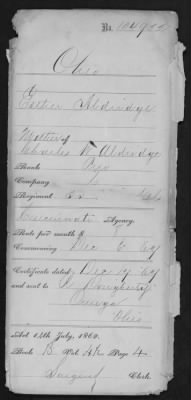 No. 104923
Ohio
Esther Aldridge
Mother of
Charles W. Aldridge
Rank Pri
Company
Regiment
Cincinnati Agency.
Rate per month $ 8
Commencing Dec 6 64
Certificate dated Dec 19 64
and sent to
Ohio
Act 14th July, 1862.
Book B Vol. 4½ Page 4
Sargent Clerk.